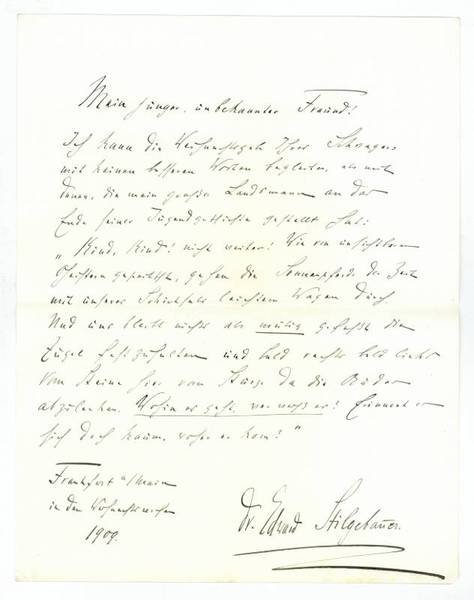 Mein junger, unbekannter Freund!
Ich kann die Weihnachtsgabe Ihres Schwagers
mit keinen besseren Worten begleiten, als mit
denen, die mein großer Landsmann an das
Ende seiner Jugendgeschichte gestellt hat:
„Kind, Kind! nicht weiter! Wie von unsichtbaren
Geistern gepeitscht, gehen die Sonnenpferde der Zeit
mit unsers Schicksals leichtem Wagen durch
Und uns bleibt nichts als mutig gefaßt die
Zügel festzuhalten und bald rechts bald links
vom Steine hier vom Sturze da die Räder
abzulenken. Wohin es geht, wer weiß es! Erinnert er
sich doch kaum, woher er kam!"
Frankfurt a/Main
in den Weihnachtswochen
1909.
Dr. Edward Stilgebauer.